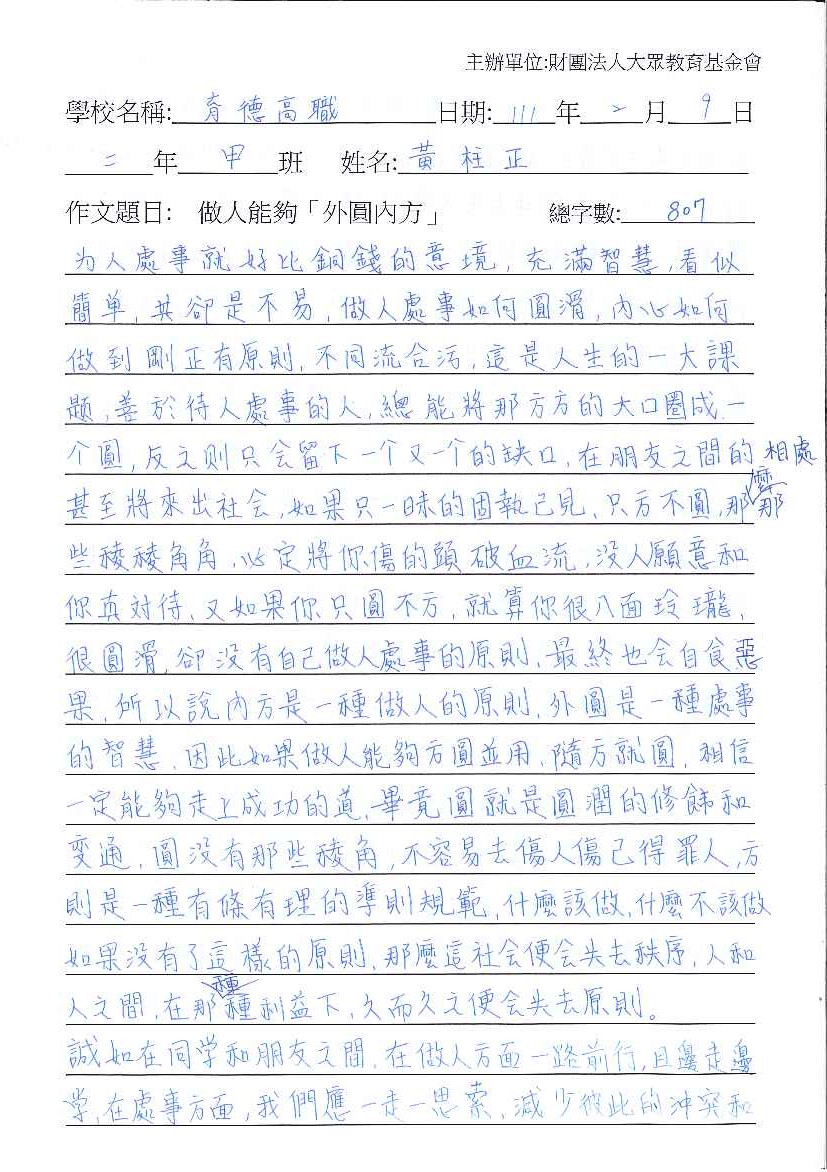 主辦單位:財團法人大眾教育基金會
學校名稱: 育德高職 日期: 111 年 二 月 9 日
二 年 甲 班 姓名: 黃柱正
作文題目: 做人能夠「外圓內方」 總字數: 807
为人處事就好比銅錢的意境，充滿智慧，看似
簡单，其卻是不易，做人處事如何圓滑，內心如何
做到剛正有原則，不同流合污，這是人生的一大課
題，善於待人處事的人，總能將那方方的大口圈成一
个圓，反之则只会留下一个又一个的缺口，在朋友之間的相處
甚至將來出社会，如果只一昧的固執己見，只方不圓，那麼那
些稜稜角角，必定將你傷的頭破血流，没人願意和
你真对待，又如果你只圓不方，就算你很八面玲瓏，
很圓滑，卻没有自己做人處事的原則，最終也会自食惡
果，所以說內方是一種做人的原则，外圓是一種處事
的智慧，因此如果做人能夠方圓並用，隨方就圓，相信
一定能夠走上成功的道，畢竟圓就是圓潤的修飾和
变通，圓没有那些稜角，不容易去傷人傷己得罪人，方
則是一種有條有理的準則規範，什麼該做，什麼不該做
如果没有了這樣的原則，那麼這社会便会失去秩序，人和
人之間，在那種種利益下，久而久之便会失去原则。
誠如在同学和朋友之間，在做人方面一路前行，且邊走邊
学，在處事方面，我們應一走一思索，減少彼此的冲突和